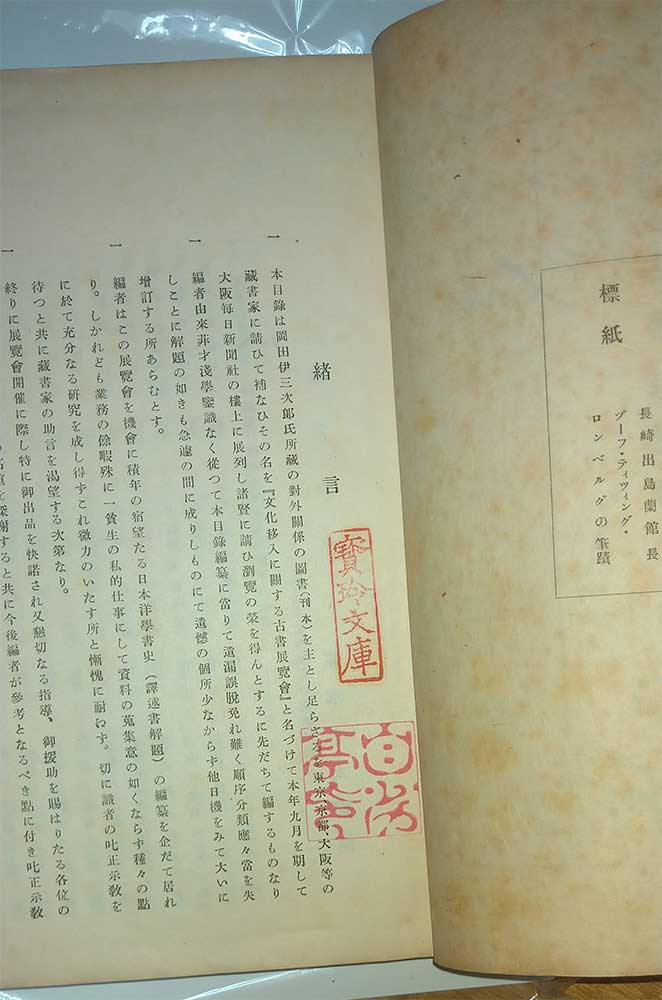 標紙
長崎出島蘭館長
ヅーフ・ティツィング・
ロンベルグの筆蹟
緒言
一 本目錄は岡田伊三次郎氏所藏の對外關係の圖書(刊本)を主とし足らざるを東京、京都、大阪等の
藏書家に請ひて補なひその名を『文化移入に關する古書展覽會』と名づけて本年九月を期して
大阪每日新聞社の樓上に展列し諸賢に請ひ瀏覽の榮を得んとするに先だちて編するものなり
一 編者由來菲才淺學鑒識なく從つて本目錄編纂に當りて遺漏誤脱免れ難く順序分類應々當を失
しことに解題の如きも急遽の間に成りしものにて遺憾の個所少なからず他日機をみて大いに
增訂する所あらむとす。
一 編者はこの展覽會を機會に積年の宿望たる日本洋學書史(譯述書解題)の編纂を企だて居れ
り。しかれども業務の餘暇殊に一貧生の私的仕事にして資料の蒐集意の如くならず種々の點
に於て充分なる硏究を成し得ずこれ微力のいたす所と慚愧に耐ねす。切に識者の叱正示敎を
待つと共に藏書家の助言を渴望する次第なり。
一 終りに展覽會開催に際し特に御出品を快諾され又懇切なる指導、御援助を賜はりたる各位の
を深謝すると共に今後編者が參考となるべき點に付き叱正示敎
寶玲文庫